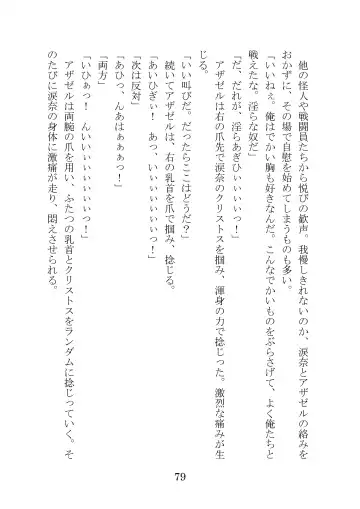 他の怪人や戦闘員たちから悦びの歓声。我慢しきれないのか、涙奈とアザゼルの絡みを
おかずに、その場で自慰を始めてしまうものも多い。
「いいねぇ。俺はでかい胸も好きなんだ。こんなでかいものをぶらさげて、よく俺たちと
戦えたな。淫らな奴だ」
「だ、だれが、淫らあぎひぃぃぃぃっ！」
アザゼルは右の爪先で涙奈のクリストスを掴み、渾身の力で捻じった。激烈な痛みが生
じる。
「いい叫びだ。だったらここはどうだ？」
続いてアザゼルは、右の乳首を爪で掴み、捻じる。
「あいひぎぃ！　あっ、いぃぃぃぃぃぃっ！」
「次は反対」
「あひっ、んあはぁぁぁっ！」
「両方」
「いひぁっ！　んいいぃぃぃぃぃぃぃっ！」
アザゼルは両腕の爪を用い、ふたつの乳首とクリストスをランダムに捻じっていく。そ
のたびに涙奈の身体に激痛が走り、悶えさせられる。
79